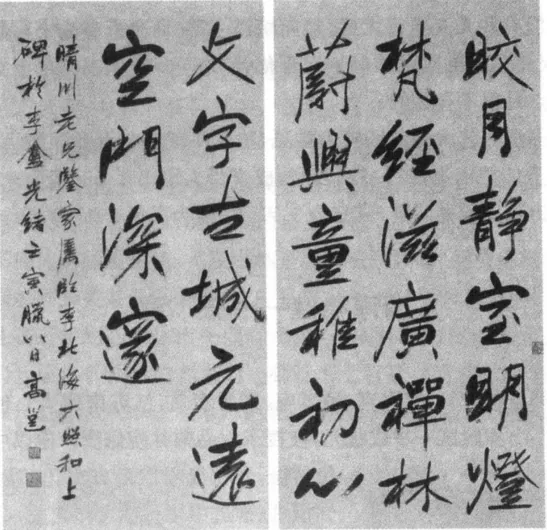 皎月静室明燈
梵經滋廣禪林
蔚興童稚初心
文字古城元遠
空門深邃
晴川老兄鑒家屬臨李北海大照和上
碑於李盦光緒壬寅臘八日高邕